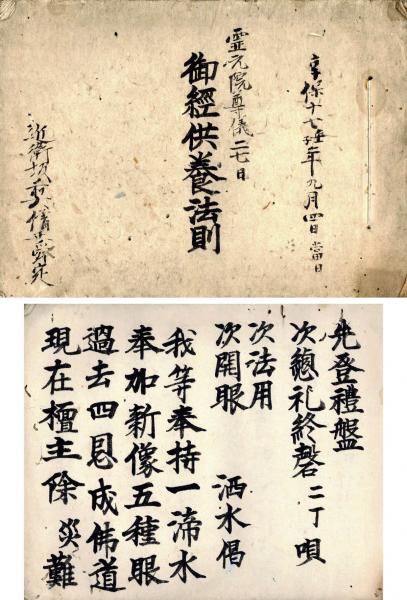 享保十七壬子年九月四日當日
霊元院尊儀二七日
御經供養法則
先登禮盤
次總礼終磬二丁 唄
次法用
次開眼 洒水偈
我等奉持一渧水
奉加新像五種眼
過去四恩成佛道
現在檀主除災難